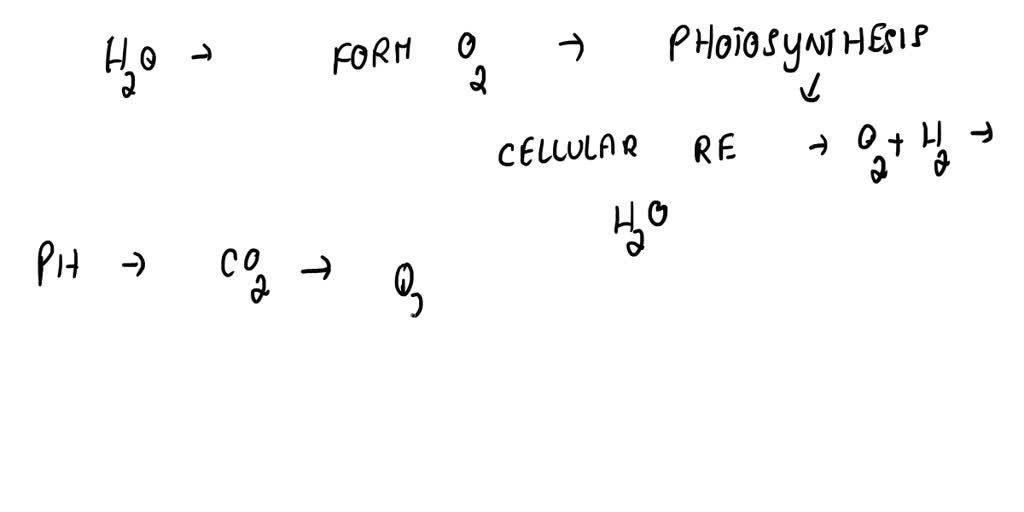 H₂O → FORM O₂ → PHOTOSYNTHESIS
↓
CELLULAR RE → O₂ + H₂ →
H₂O
PH → CO₂ → O,